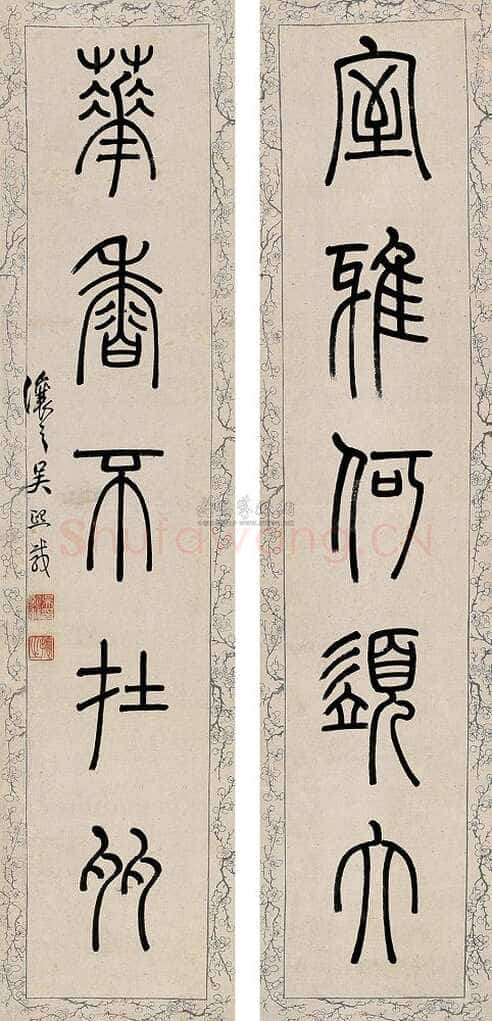 室雅何須大
華香不在多
讓之吳熙載
Shufawang.CN